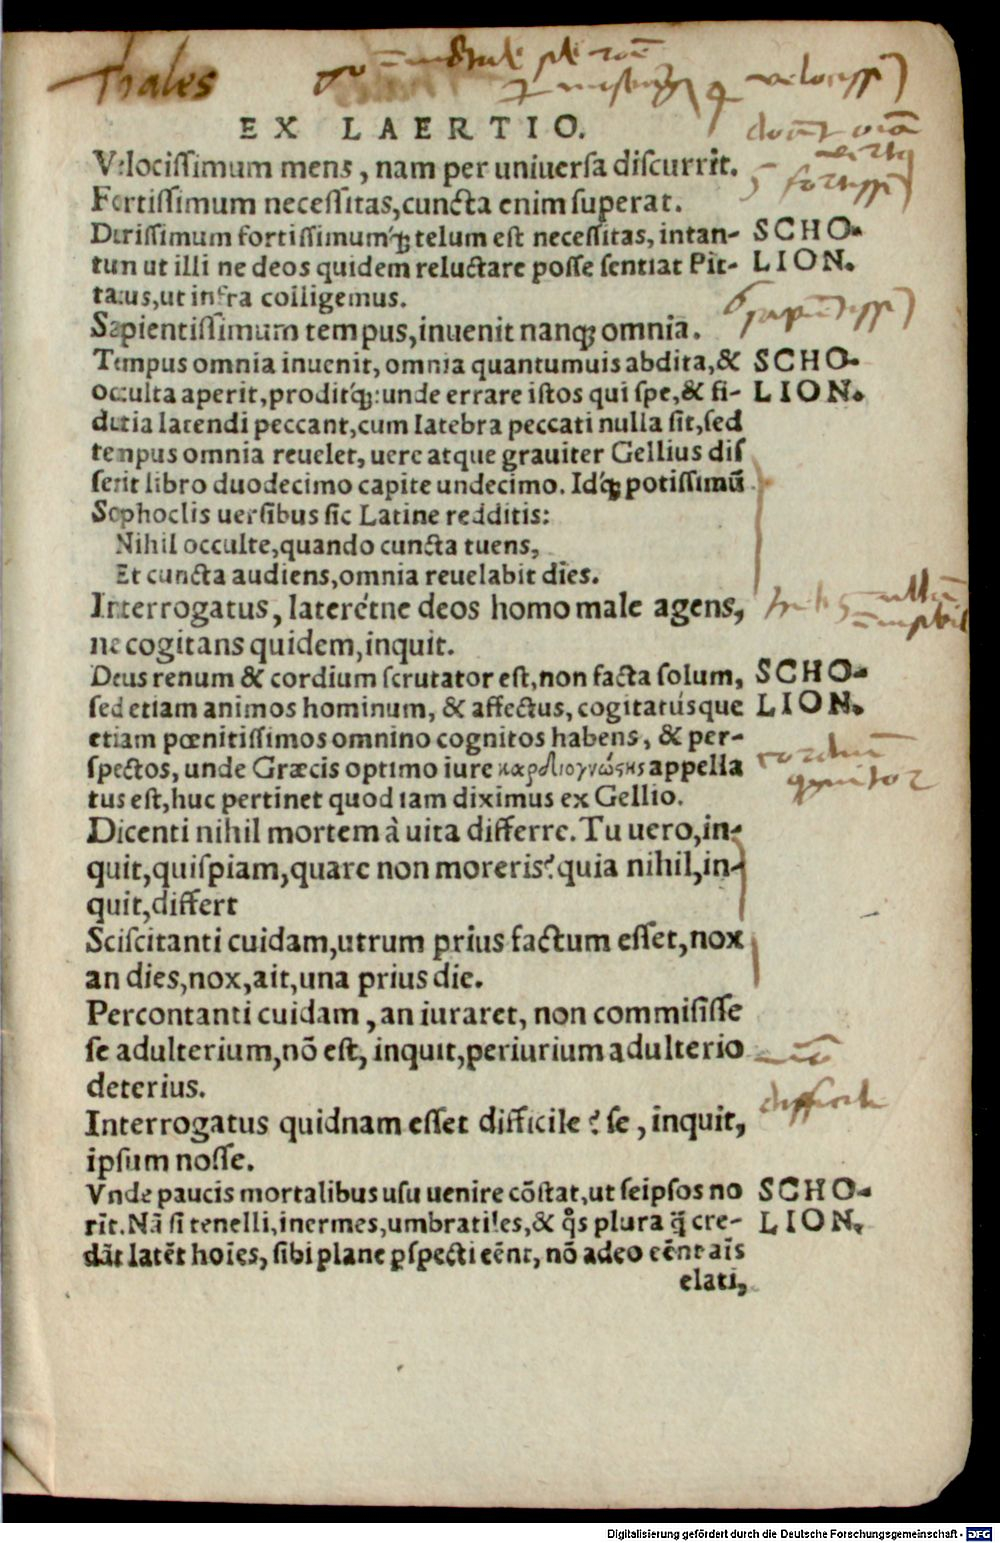 Thales
EX LAERTIO.
Velocissimum mens, nam per uniuersa discurrit.
Fortissimum necessitas, cuncta enim superat.
Durissimum fortissimumq́ꝫ telum est necessitas, intan-
SCHO-
tum ut illi ne deos quidem reluctare posse sentiat Pit-
LION.
tacus, ut infra colligemus.
Sapientissimum tempus, inuenit nanqꝫ omnia.
Tempus omnia inuenit, omnia quantumuis abdita, &
SCHO-
occulta aperit, proditq́ꝫ: unde errare istos qui spe, & fi-
LION.
ducia latendi peccant, cum latebra peccati nulla sit, sed
tempus omnia reuelet, uere atque grauiter Gellius dis
serit libro duodecimo capite undecimo. Idq́ꝫ potissimũ
Sophoclis uersibus sic Latine redditis:
Nihil occulte, quando cuncta tuens,
Et cuncta audiens, omnia reuelabit dies.
Interrogatus, lateretne deos homo male agens,
ne cogitans quidem, inquit.
Deus renum & cordium scrutator est, non facta solum,
SCHO-
sed etiam animos hominum, & affectus, cogitatúsque
LION.
etiam pœnitissimos omnino cognitos habens, & per-
spectos, unde Græcis optimo iure καρδιογνώςης appella
tus est, huc pertinet quod iam diximus ex Gellio.
cordiũ
Dicenti nihil mortem à uita differre. Tu uero, in-
quit, quispiam, quare non moreris? quia nihil, in-
quit, differt
Sciscitanti cuidam, utrum prius factum esset, nox
an dies, nox, ait, una prius die.
Percontanti cuidam, an iuraret, non commisisse
se adulterium, nõ est, inquit, periurium adulterio
deterius.
difficile
Interrogatus quidnam esset difficile? se, inquit,
ipsum nosse.
Vnde paucis mortalibus usu uenire cõstat, ut seipsos no
SCHO-
rĩt. Nã si tenelli, inermes, umbratiles, & q̊s plura q̃ cre-
LION.
dãt latẽt hoĩes, sibi plane ꝑspecti eẽnt, nõ adeo eẽnt aĩs
elati,
Digitalisierung gefördert durch die Deutsche Forschungsgemeinschaft - DFG